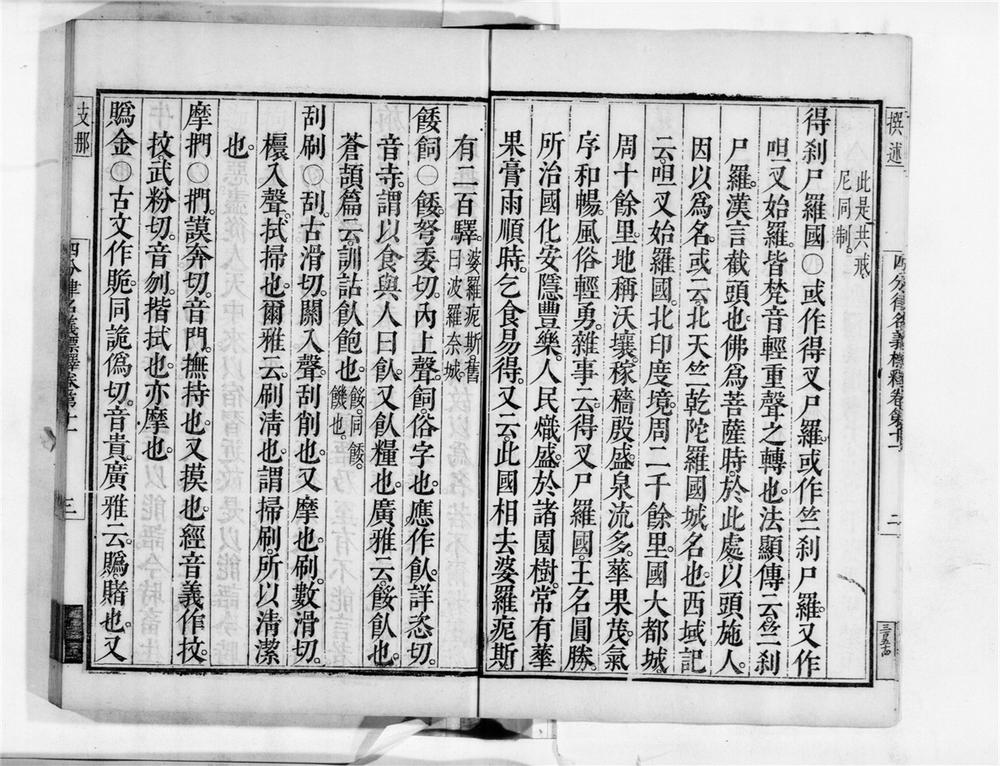 撰述
四分律名義標釋卷第十一
二
此是共戒
尼同制。
得剎尸羅國○或作得叉尸羅。或作竺剎尸羅。又作
呾叉始羅。皆梵音輕重聲之轉也。法顯傳云。竺剎
尸羅。漢言截頭也。佛為菩薩時。於此處。以頭施人。
因以為名。或云。北天竺乾陀羅國城名也。西域記
云。呾叉始羅國。北印度境。周二千餘里。國大都城
周十餘里。地稱沃壤。稼穡殷盛。泉流多。華果茂。氣
序和暢。風俗輕勇。雜事云。得叉尸羅國。王名圓勝。
所治國化。安隱豐樂。人民熾盛。於諸園樹。常有華
果。膏雨順時。乞食易得。又云。此國相去婆羅痆斯
有一百驛。婆羅痆斯。舊
曰波羅奈城
餧飼○餧。弩委切。內上聲。飼。俗字也。應作飤。詳恣切。
音寺。謂以食與人曰飤。又飤糧也。廣雅云。餧飤也。
蒼頡篇云。訓詁飤飽也。餧。同餒。
饑也。
刮刷○刮。古滑切。關入聲。刮削也。又摩也。刷。數滑切。
櫦入聲。拭掃也。爾雅云。刷清也。謂掃刷。所以清潔
也。
摩捫○捫。謨奔切。音門。撫持也。又摸也。經音義作抆。
抆。武粉切。音刎。揩拭也。亦摩也。
賭金○古文作贍。同詭偽切。音貴。廣雅云。賭也。又
支那
四分律名義標釋卷第十一
三